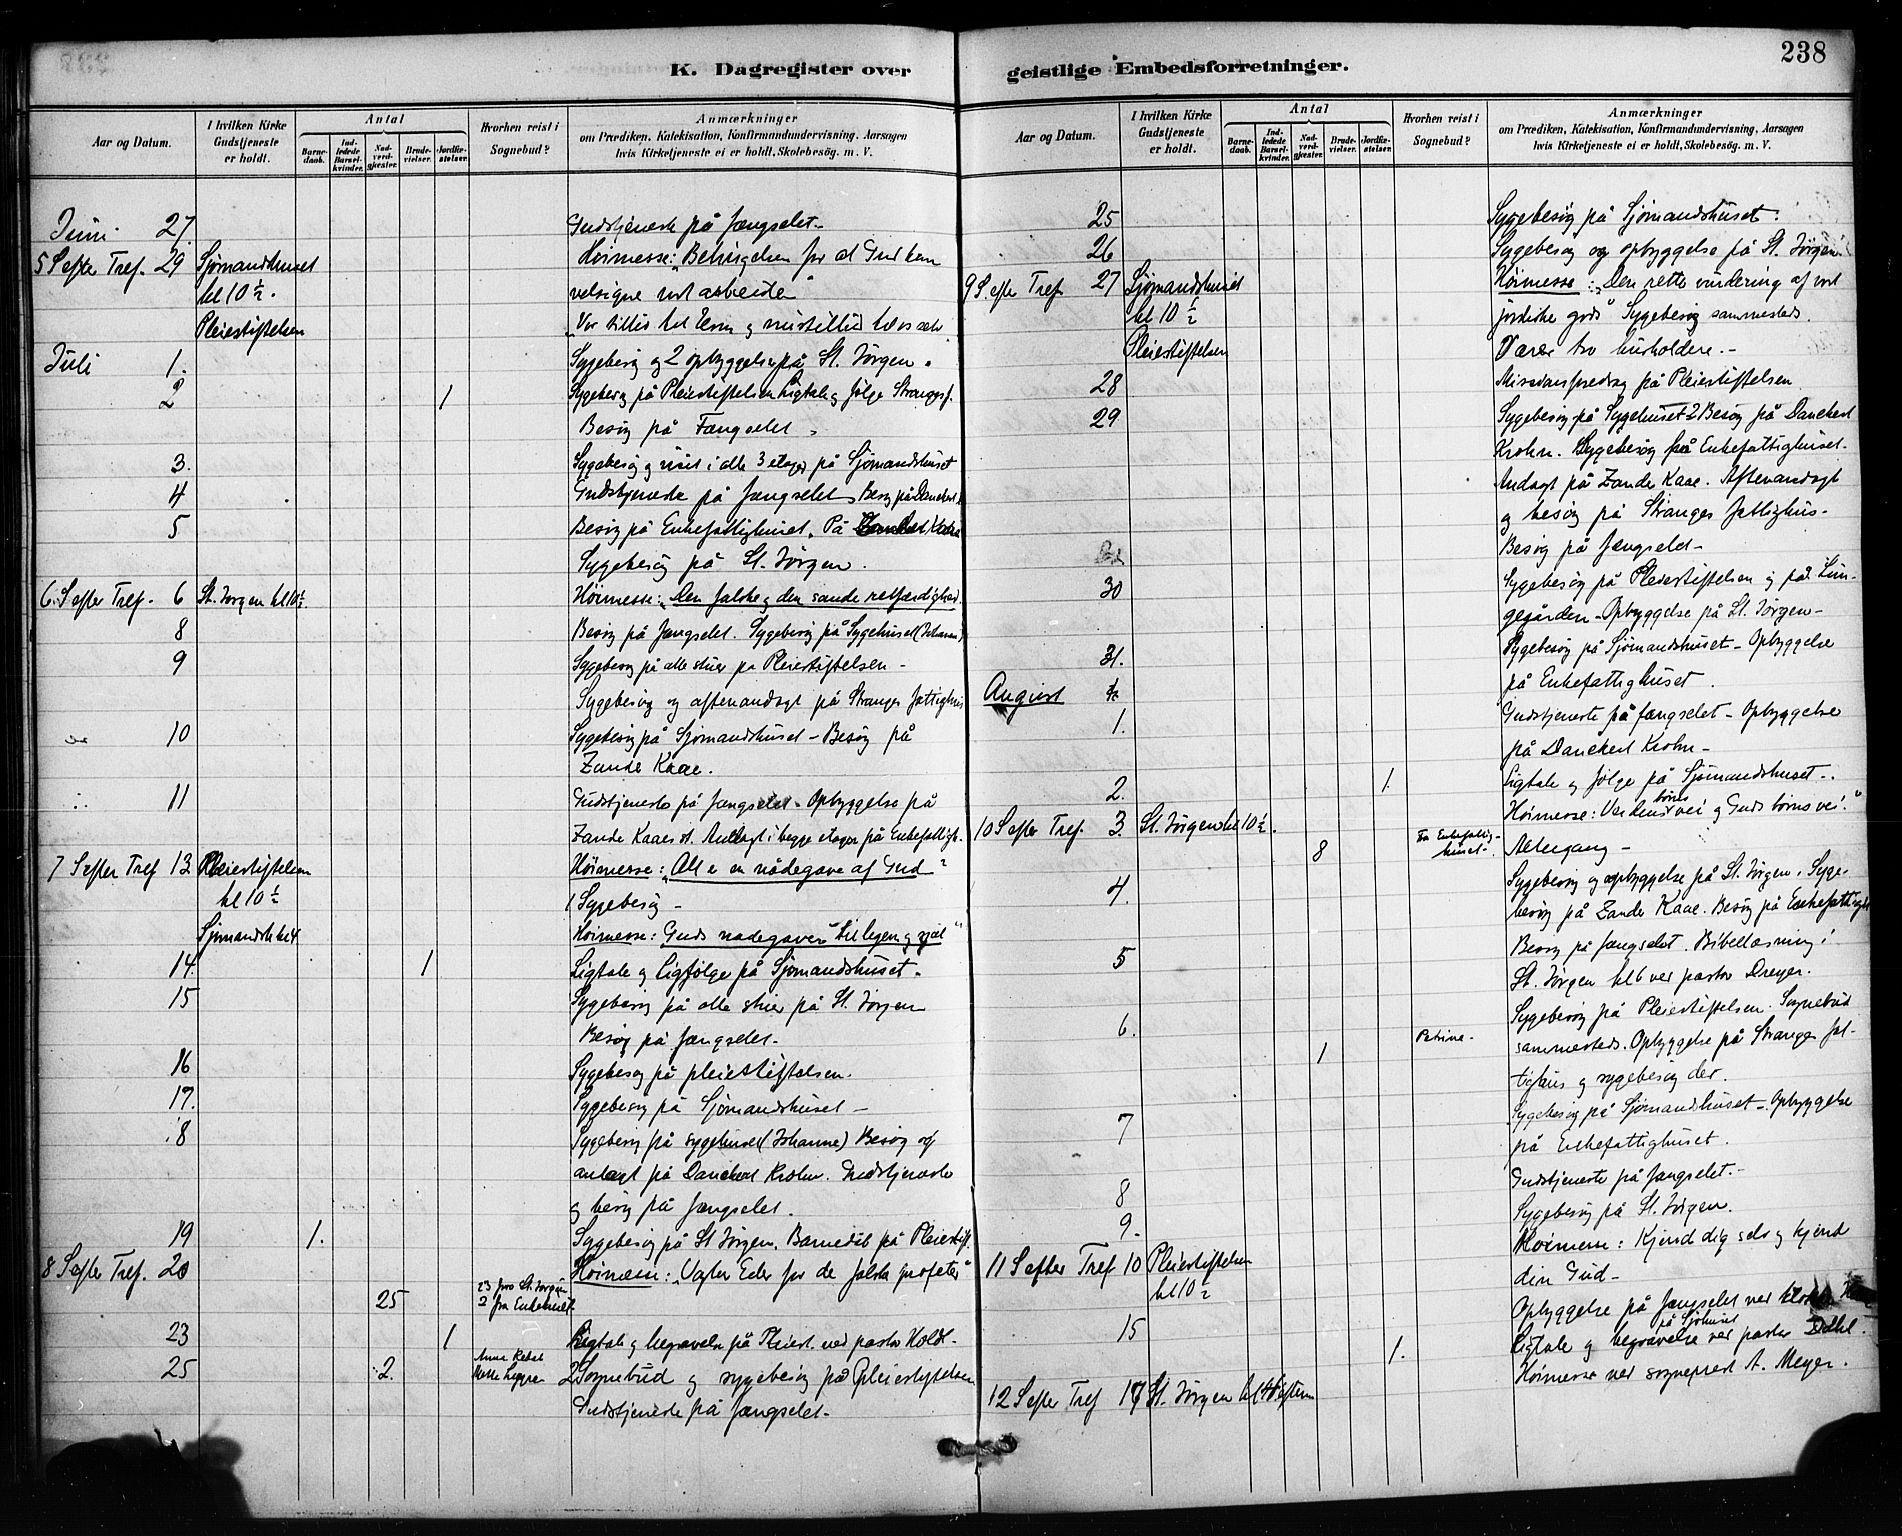 K. Dagregister over
Aar og Datum.
I hvilken Kirke Gudstjeneste er holdt.
Antal
Barnedaab.
Indledede Barselkvinder.
Nadverdgjester.
Brudevielser.
Jordfæstelser.
Hvorhen reist i Sognebud?
Anmærkninger
om Prædiken, Katekisation, Konfirmandundervisning, Aarsagen
hvis Kirketjeneste ei er holdt, Skolebesøg. m. V.
Juni 27. Gudstjeneste på fængselet.
5 S efter Tref. 29 Sjømandshuset Høimesse: Betingelsen for at Gud kan
kl 10 ½. velsigne vort arbeide"
Pleiestiftelsen
Juli 1. Sygebesøg og 2 opbyggelser på St. Jørgen.
2 1 Sygebesøg på Pleiestiftelsen Ligtale og følge Stranges f.
Besøg på Fængselet.
3. Sygebesøg og visit i alle 3 etager på Sjømandshuset
4 Gudstjeneste på fængselet Besøg på Danckert
5 Besøg på Enkefattighuset. På
Sygebesøg på St. Jørgen.
6. S efter Tref. 6 St. Jørgen kl 10½ Høimesse: "Den falske og den sande retfærdighed.
8 Besøg på fængselet. Sygebesøg på Sygehuset (Johanne)
9 Sygebesøg på alle stuer på Pleiestiftelsen -
Sygebesøg og aftenandagt på Stranges fattighus
10 Sygebesøg på Sjømandshuset - Besøg på
Zander Kaae.
11 Gudstjeneste på fængselet - Opbyggelse på
Zander Kaaes st. Andagt i begge etager på Enkefattigh.
7 S efter Tref 13 Pleiestiftelsen Høimesse: "Alt er en nådegave af Gud"
kl 10 ½ 1 Sygebesøg -
Sjømandsh. kl 4 Høimesse: Guds nadegaver til legem og sjæl"
14. 1 Ligtale og ligfølge på Sjømandshuset.
15 Sygebesøg på alle stuer på St. Jørgen
Besøg på fængselet.
16 Sygebesøg på pleiestiftelsen.
17. Sygebesøg på Sjømandshuset -
18 Sygebesøg på sygehuset (Johanne) Besøg og
andagt på Danckert Krohn. Gudstjeneste
og besøg på fængselet.
19 1. Sygebesøg på St Jørgen. Barnedåb på Pleiestift.
8 S efter Tref. 20 Høimesse: "Vogter Eder for de falske profeter"
25 23 fra St. Jørgen
2 fra Enkehuset
23 1 Ligtale og begravelse på Pleiest. ved pastor Holdt.
25 2. 2 Sognebud og sygebesøg på Pleiestiftelsen
Gudstjeneste på fængselet.
238
geistlige Embedsforretninger.
Aar og Datum.
I hvilken Kirke Gudstjeneste er holdt.
Antal
Barnedaab.
Indledede Barselkvinder.
Nadverdgjester.
Brudevielser.
Jordfæstelser.
Hvorhen reist i Sognebud?
Anmærkninger
om Prædiken, Katekisation, Konfirmandundervisning, Aarsagen
hvis Kirketjeneste ei er holdt, Skolebesøg. m. V.
25 Sygebesøg på Sjømandshuset.
26 Sygebesøg og opbyggelse på St. Jørgen.
9 S. efter Tref. 27 Sjømandshuset Høimesse: "Den rette vurdering af vort
kl 10 ½ jordiske gods" Sygebesøg sammesteds.
Pleiestiftelsen Værer tro husholdere. -
28 Missionsforedrag på Pleiestiftelsen
29 Sygebesøg på Sygehuset 2 Besøg på Danckert
Krohn. Sygebesøg på Enkefattighuset.
Andagt på Zander Kaae. Aftenandagt
og besøg på Stranges fattighus -
Besøg på fængselet -
30 Sygebesøg på Pleiestiftelsen og på Lun-
gegården - Opbyggelse på St. Jørgen -
31. Sygebesøg på Sjømandshuset - Opbyggelse
på Enkefattighuset.
August
1. Gudstjeneste på fængselet - Opbyggelse
på Danckert Krohn -
2. 1. Ligtale og følge på Sjømandshuset -
10 S efter Tref. 3. St. Jørgen kl 10 ½. Høimesse: Verdens børns vei og Guds børns vei."
8 Fra Enkefattighuset. Altergang -
4. Sygebesøg og opbyggelse på St. Jørgen. Syge-
besøg på Zander Kaae. Besøg på Enkefattigh
5 Besøg på fængselet. Bibellæsning i
St. Jørgen kl 6 ved pastor Dreyer.
6. 1 Petrine. Sygebesøg på Pleiestiftelsen. Sognebud
sammesteds. Opbyggelse på Stranges fat-
tighus og sygebesøg der.
7 Sygebesøg på Sjømandshuset - Opbyggelse
på Enkefattighuset.
8 Gudstjeneste på fængselet. -
9. Sygebesøg på St. Jørgen.
11 S efter Tref 10 Pleiestiftelsen Høimesse: Kjend dig selv og kjend
kl 10 ½ din Gud -
Opbyggelse på fængselet ved
15 1. Ligtale og begravelse på Sjøhuset ved pastor
12 S efter Tref 17 St. Jørgen kl Høimesse ved sognepræst A. Meyer.